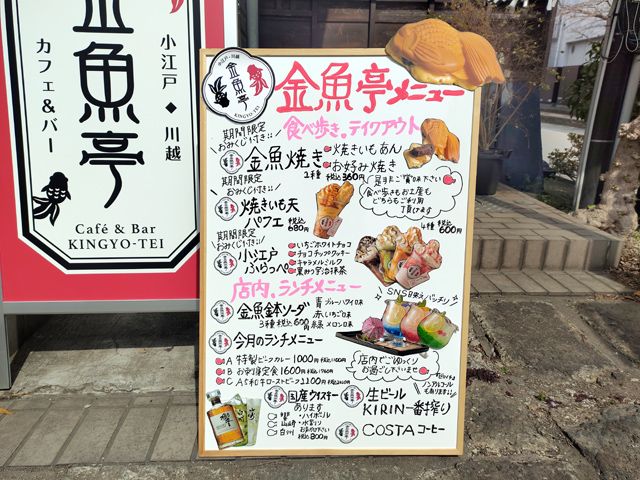 金魚亭
小江戸◆川越
カフェ&バー
Café & Bar
KINGYO-TEI
小江戸・川越
金魚亭
KINGYO TEI
金魚亭メニュー
食べ歩き。テイクアウト
期間限定
おみくじ付き!!
金魚焼き
2種 税込360円
焼きいもあん
お好み焼き
食べ歩きもお土産も
どちらもご利用
頂けます
期間限定
おみくじ付き!!
焼きいも天
パフェ
税込
680円
期間限定
おみくじ付き!!
小江戸
ふらっぺ
4種 税込
600円
いちごホワイトチョコ
チョコチップクッキー
キャラメルミルク
黒みつ宇治抹茶
店内。ランチメニュー
金魚鉢本ソーダ
3種 税込600円
青 ブルーハワイ味
赤 いちご味
緑 メロン味
SNS映えバッチリ
今月のランチメニュー
A 特製ビーフカレー 1000円 税込1100円
B お刺身定食 1600円 税込1760円
C A5和牛ローストビーフ
店内でごゆっくり
お過ごし下さいませ
国産ウイスキー
あります
響
山崎
白州
・ハイボール
・水割り
税込800円
生ビール
ノンアルコール
もあります
KIRIN一番搾り
COSTAコーヒー